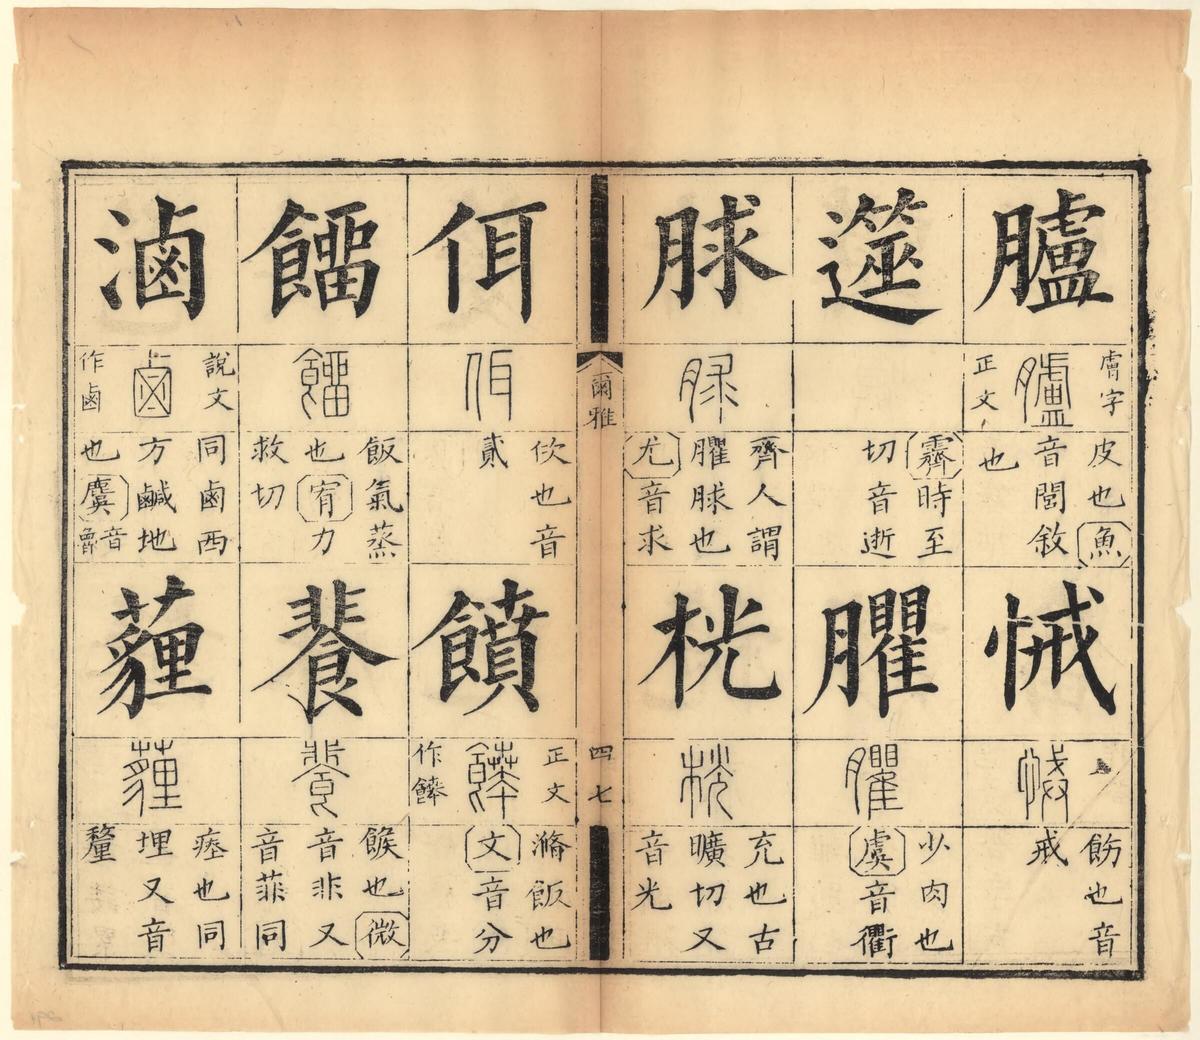 臚
膚字
臚
正文
皮也魚
音閭敘
也
悈
悈
飭也音
戒
遾
霽時至
切音逝
臞
臞
少肉也
虞音衢
脙
脙
齊人謂
臞脙也
尤音求
桄
桄
充也古
曠切又
音光
爾雅
四七
佴
佴
佽也音
貳
饙
正文
餴
作餴
滫飯也
文音分
餾
餾
飯氣蒸
也宥力
救切
餥
餥
餱也微
音非又
音菲同
滷
說文
鹵
作鹵
同鹵西
方鹹地
也麌音魯
薶
薶
瘞也同
埋又音
釐